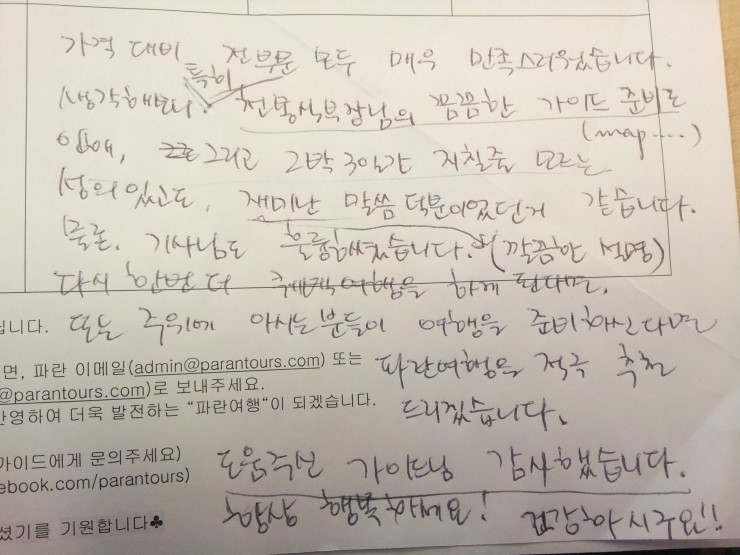 가격 대비 전부문 모두 매우 만족스러웠습니다.
특히
생각해보니. 전통식부장님의 꼼꼼한 가이드 준비로
(map....)
인해, 그리고 2박 3일간 지칠줄 모르는
성의있고도, 재미난 말씀 덕분이었던거 같습니다.
물론. 기사님도 훌륭하셨습니다. (깔끔한 설명)
다시 한번 더 하게 된다면,
또는 주위에 아시는 분들이 여행을 준비하신다면
파란여행을 적극 추천
드리겠습니다.
도움주신 가이드님 감사했습니다.
항상 행복하세요! 건강하시구요!!
립니다.
면, 파란 이메일(admin@parantours.com) 또는
@parantours.com)로 보내주세요.
반영하여 더욱 발전하는 "파란여행"이 되겠습니다.
가이드에게 문의주세요)
ebook.com/parantours)
셨기를 기원합니다♣